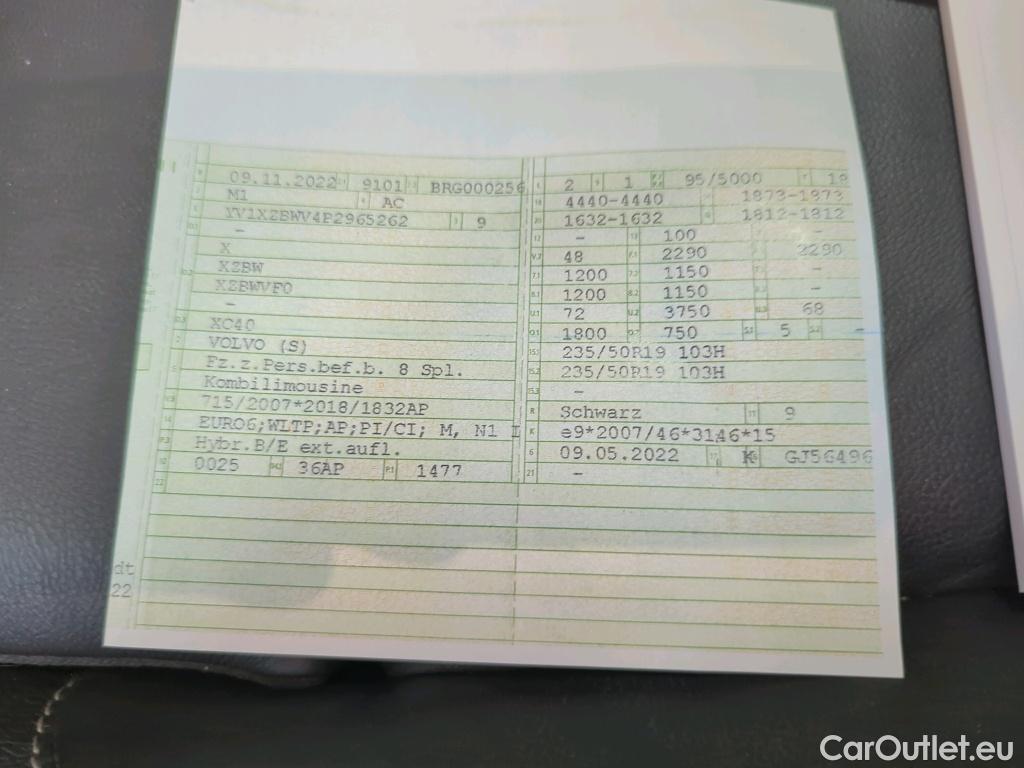 09.11.2022 9101 BRG000256
M1 AC
YV1XZBWV4P2965262 9
-
X
XZBW
XZBWVF0
-
XC40
VOLVO (S)
Fz.z.Pers.bef.b. 8 Spl.
Kombilimousine
715/2007*2018/1832AP
EURO6;WLTP;AP;PI/CI; M, N1 I
Hybr.B/E ext.aufl.
0025 36AP P.1 1477
22
2 1 95/5000 18
4440-4440 1873-1873
1632-1632 1812-1812
- 100 -
48 2290 2290
1200 1150 -
1200 1150 -
72 3750 68
1800 750 S.1 5 S.2 -
15.1 235/50R19 103H
15.2 235/50R19 103H
15.3 -
R Schwarz 11 9
K e9*2007/46*3146*15
6 09.05.2022 17 K 16 GJ56496
21 -
dt
22
CarOutlet.eu